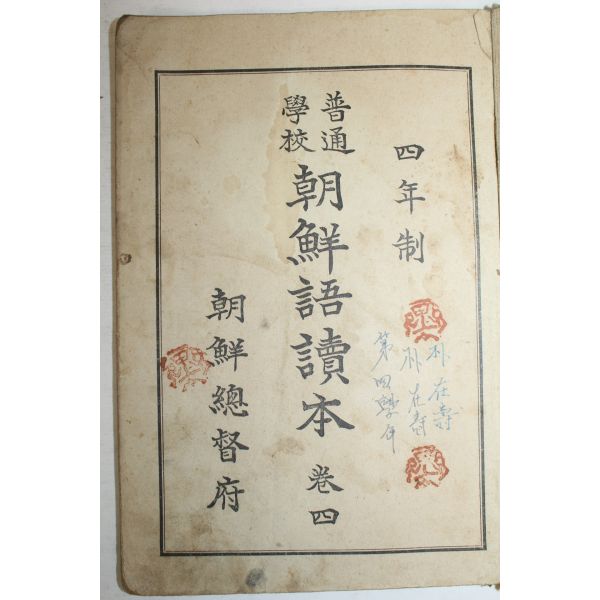 四年制
普通
學校
朝鮮語讀本 卷四
朝鮮總督府
朴在壽
朴在壽
第四學年